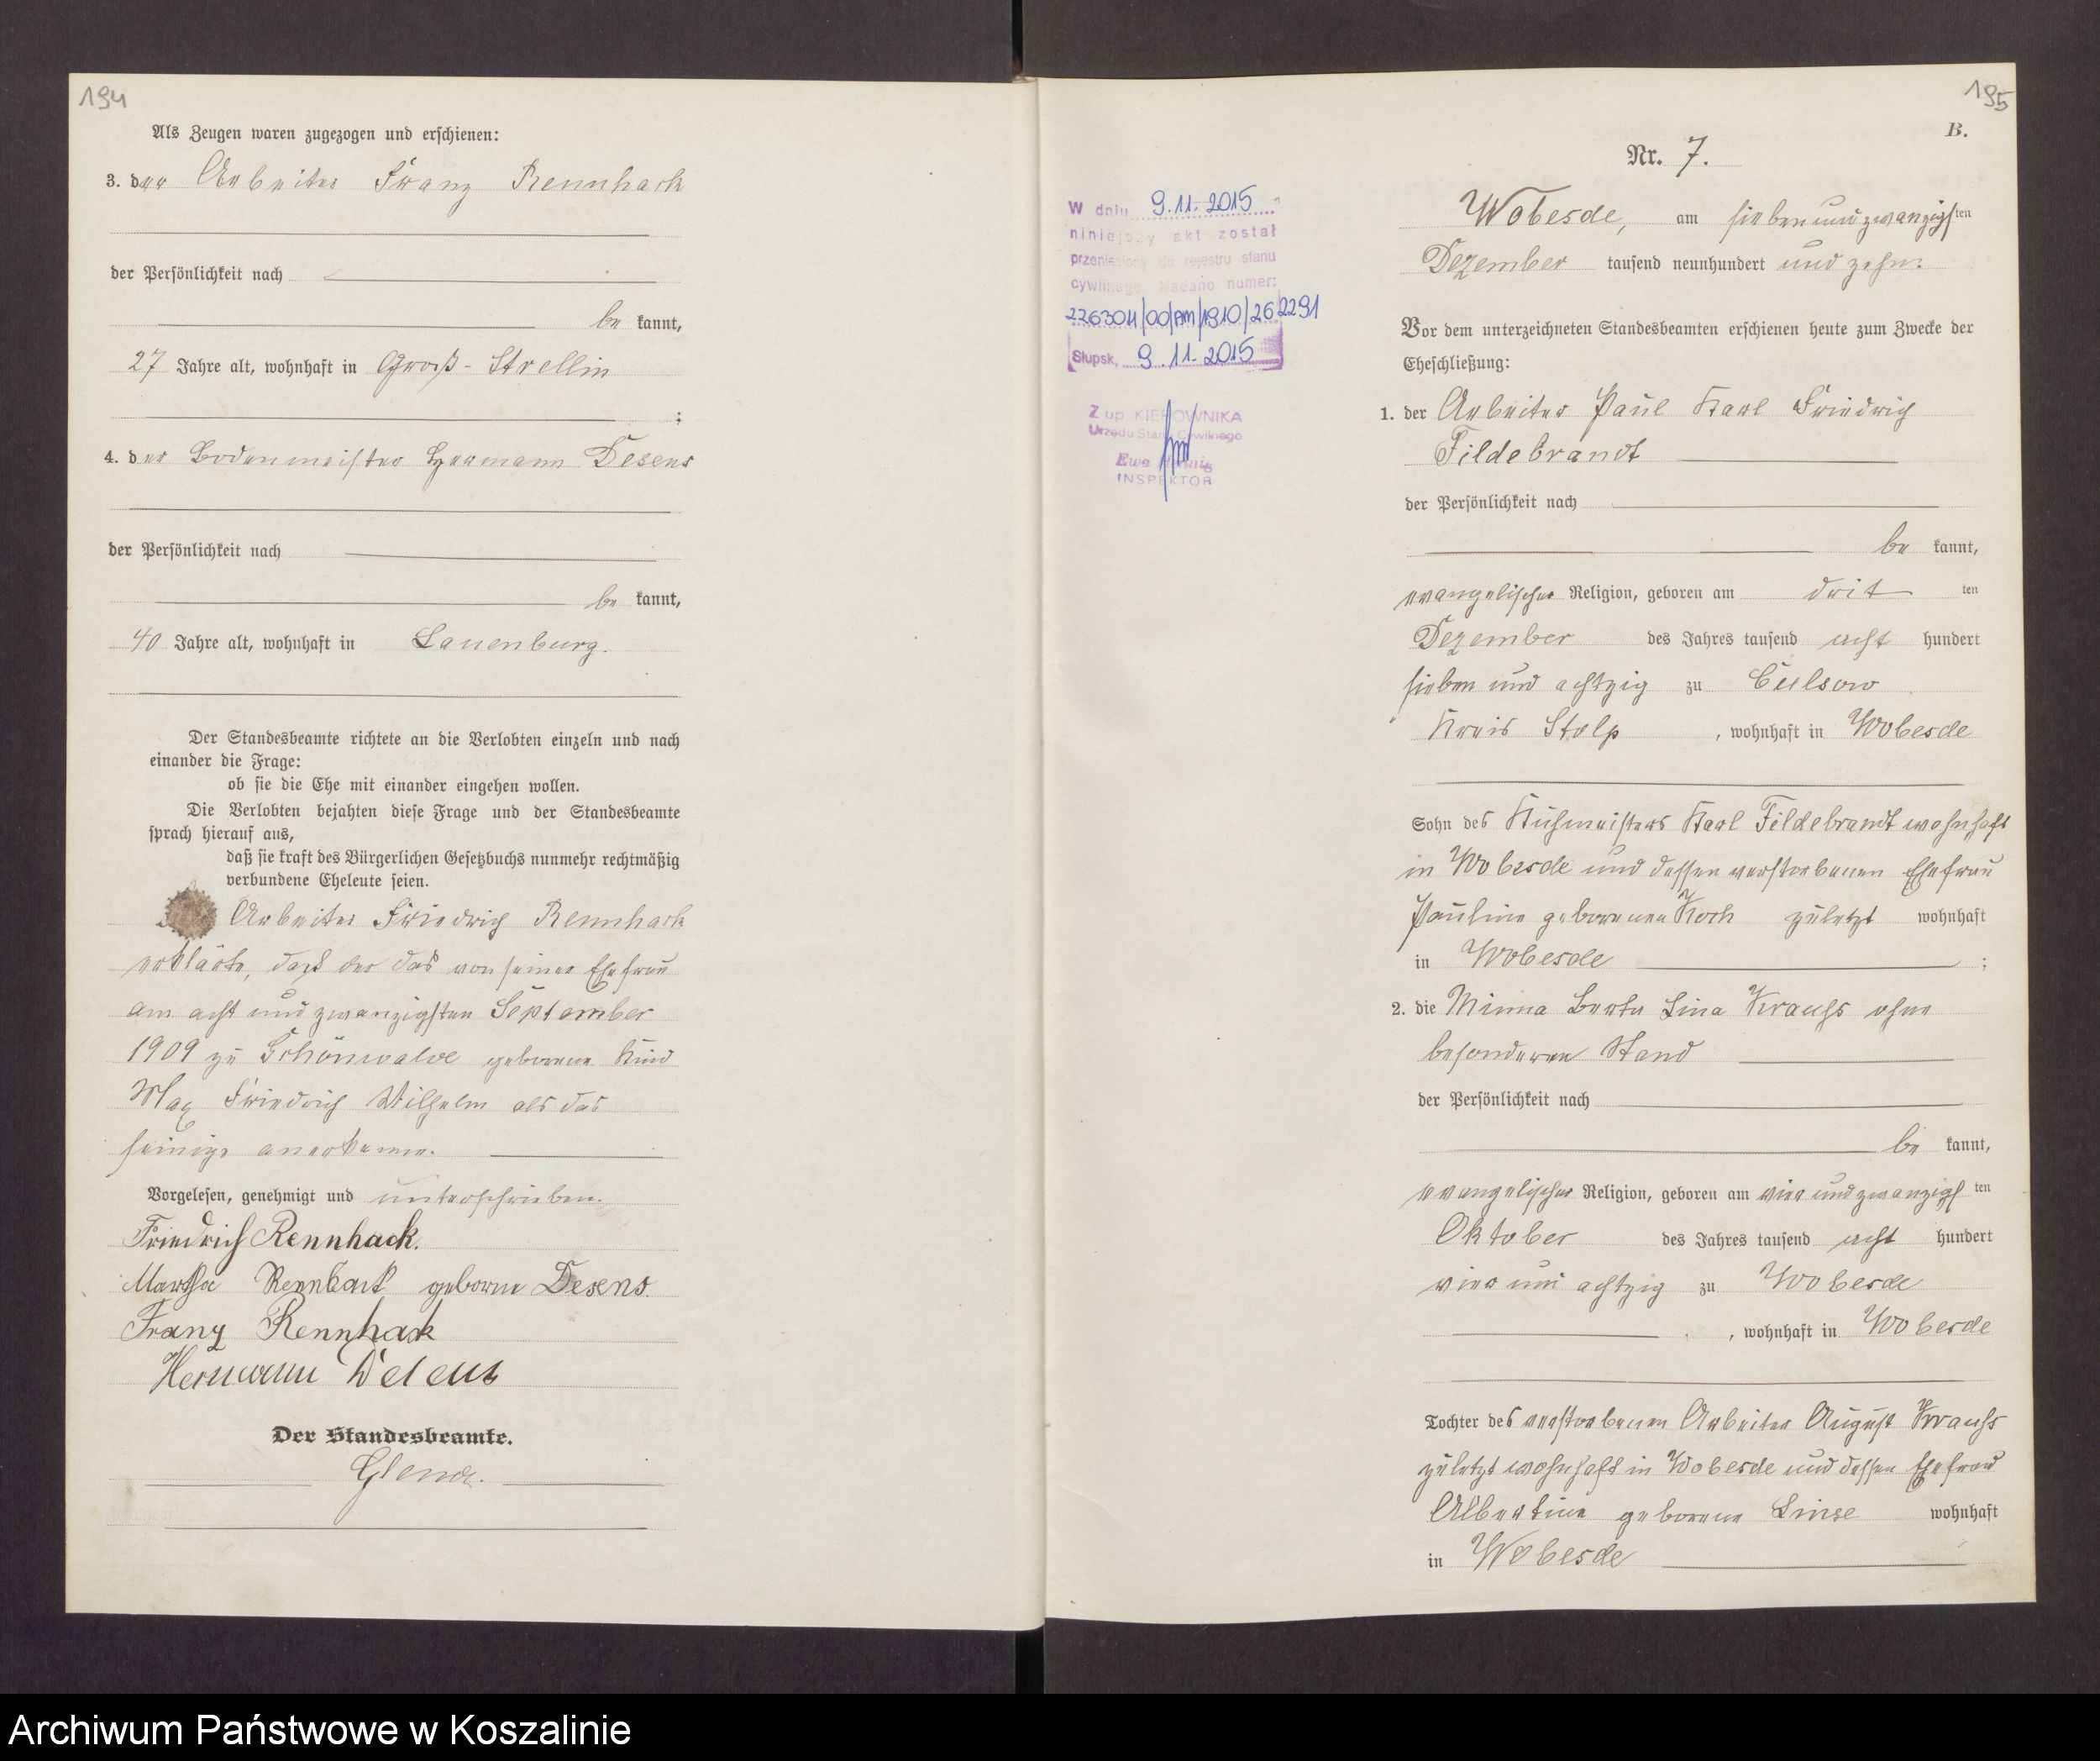 194
Als Zeugen waren zugezogen und erschienen:
3. der Arbeiter Franz Rennhack
der Persönlichkeit nach
be kannt,
27 Jahre alt, wohnhaft in Groß-Strellin
;
4. der Bodenmeister Hermann Desens
der Persönlichkeit nach
be kannt,
40 Jahre alt, wohnhaft in Lauenburg.
Der Standesbeamte richtete an die Verlobten einzeln und nach
einander die Frage:
ob sie die Ehe mit einander eingehen wollen.
Die Verlobten bejahten diese Frage und der Standesbeamte
sprach hierauf aus,
daß sie kraft des Bürgerlichen Gesetzbuchs nunmehr rechtmäßig
verbundene Eheleute seien.
Arbeiter Friedrich Rennhack
erklärte, daß der das von seiner Ehefrau
am acht und zwanzigsten September
1909 zu Schönwalde geborene Kind
Max Friedrich Wilhelm als das
seinige anerkenne.
Vorgelesen, genehmigt und unterschrieben.
Friedrich Rennhack.
Martha Rennhack geborne Desens.
Franz Rennhack
Hermann Desens
Der Standesbeamte.
195
B.
Nr. 7.
Wobesde, am siebenundzwanzigsten
Dezember tausend neunhundert und zehn.
Vor dem unterzeichneten Standesbeamten erschienen heute zum Zwecke der
Eheschließung:
1. der Arbeiter Paul Karl Friedrich
Fildebrandt
der Persönlichkeit nach
be kannt,
evangelischer Religion, geboren am drit ten
Dezember des Jahres tausend acht hundert
sieben und achtzig zu Culsow
Kreis Stolp, wohnhaft in Wobesde
Sohn des Kuhmeisters Karl Fildebrandt wohnhaft
in Wobesde und dessen verstorbenen Ehefrau
Pauline geborenen Koch zuletzt wohnhaft
in Wobesde ;
2. die Minna Berta Lina Krauss ohne
besonderen Stand
der Persönlichkeit nach
be kannt,
evangelischer Religion, geboren am vier und zwanzigs ten
Oktober des Jahres tausend acht hundert
vier und achtzig zu Wobesde
, wohnhaft in Wobesde
Tochter des verstorbenen Arbeiter August Krauss
zuletzt wohnhaft in Wobesde und dessen Ehefrau
Albertine geborene Linse wohnhaft
in Wobesde
W dniu 9.11.2015
niniejszy akt został
przeniesiony do rejestru stanu
cywilnego. Nadano numer:
2263011/00/AM/1910/262291
Słupsk, 9.11.2015
Z up. KIEROWNIKA
Urzędu Stanu Cywilnego
Ewa
INSPEKTOR
Archiwum Państwowe w Koszalinie